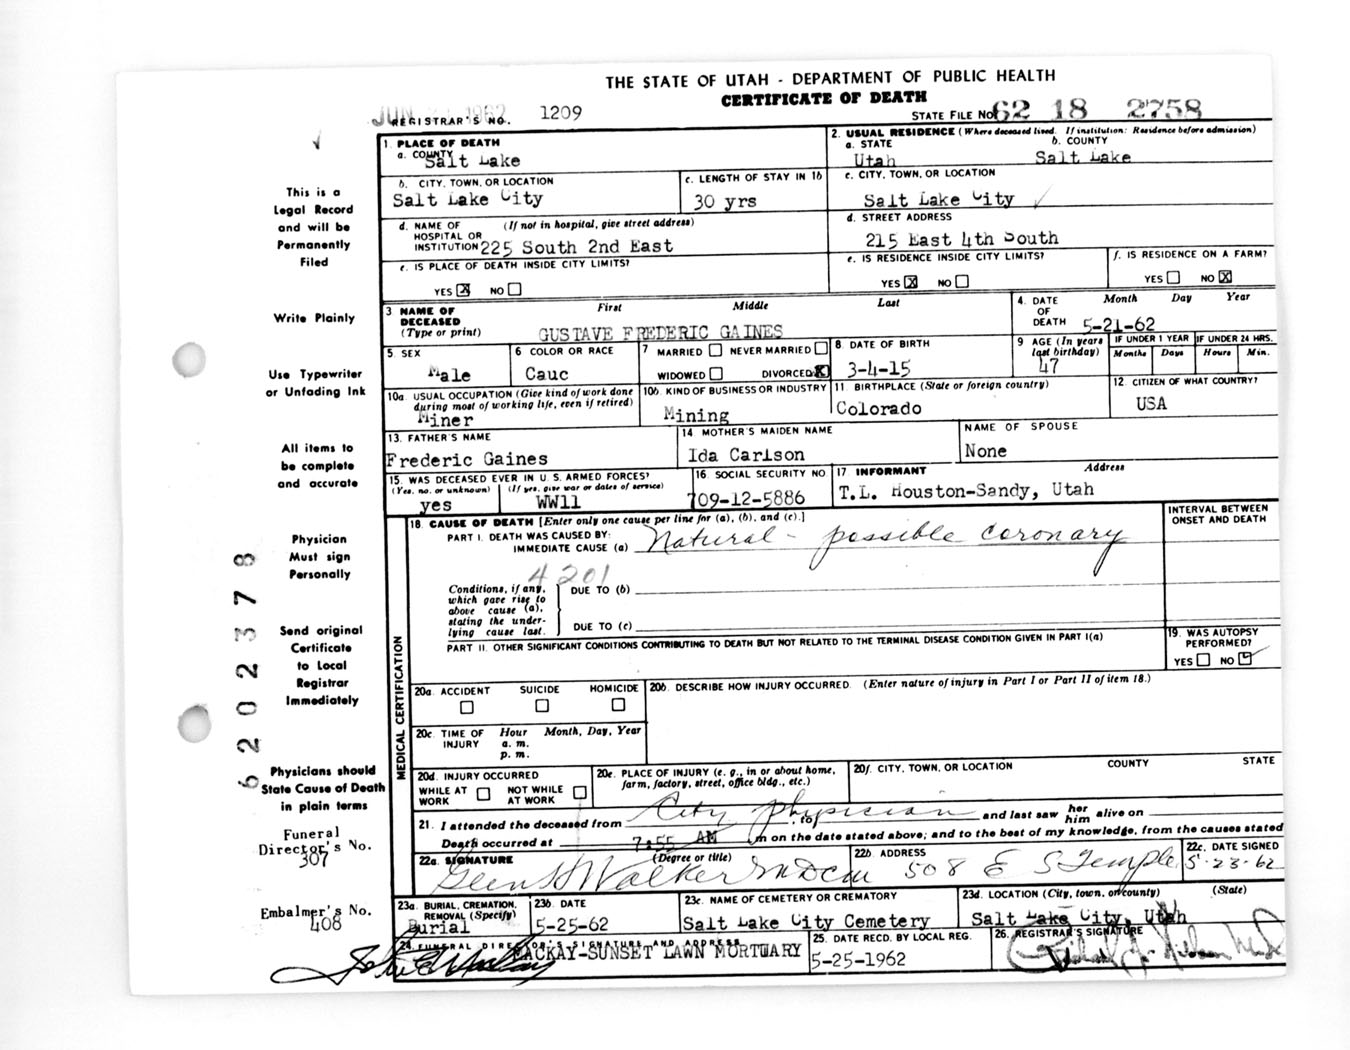 THE STATE OF UTAH - DEPARTMENT OF PUBLIC HEALTH
CERTIFICATE OF DEATH
JUN 1962
REGISTRAR'S NO. 1209
STATE FILE NO. 62 18 2758
1. PLACE OF DEATH
a. COUNTY
Salt Lake
2. USUAL RESIDENCE (Where deceased lived. If institution: Residence before admission)
a. STATE b. COUNTY
Utah Salt Lake
b. CITY, TOWN, OR LOCATION
Salt Lake City
c. LENGTH OF STAY IN 1b
30 yrs
c. CITY, TOWN, OR LOCATION
Salt Lake City
d. NAME OF (If not in hospital, give street address)
HOSPITAL OR
INSTITUTION 225 South 2nd East
d. STREET ADDRESS
215 East 4th South
e. IS PLACE OF DEATH INSIDE CITY LIMITS?
YES X NO
e. IS RESIDENCE INSIDE CITY LIMITS?
YES X NO
f. IS RESIDENCE ON A FARM?
YES NO X
3 NAME OF DECEASED (Type or print) First Middle Last
GUSTAVE FREDERIC GAINES
4. DATE OF DEATH Month Day Year
5-21-62
5. SEX
Male
6 COLOR OR RACE
Cauc
7 MARRIED NEVER MARRIED
WIDOWED DIVORCED X
8 DATE OF BIRTH
3-4-15
9 AGE (In years last birthday)
47
IF UNDER 1 YEAR IF UNDER 24 HRS.
Months Days Hours Min.
10a. USUAL OCCUPATION (Give kind of work done during most of working life, even if retired)
Miner
10b. KIND OF BUSINESS OR INDUSTRY
Mining
11. BIRTHPLACE (State or foreign country)
Colorado
12. CITIZEN OF WHAT COUNTRY?
USA
13. FATHER'S NAME
Frederic Gaines
14. MOTHER'S MAIDEN NAME
Ida Carlson
NAME OF SPOUSE
None
15. WAS DECEASED EVER IN U. S. ARMED FORCES?
(Yes, no, or unknown) (If yes, give war or dates of service)
yes WW11
16. SOCIAL SECURITY NO.
709-12-5886
17. INFORMANT Address
T.L. Houston-Sandy, Utah
MEDICAL CERTIFICATION
18. CAUSE OF DEATH [Enter only one cause per line for (a), (b), and (c).]
INTERVAL BETWEEN ONSET AND DEATH
PART I. DEATH WAS CAUSED BY:
IMMEDIATE CAUSE (a) Natural - possible coronary
4201
Conditions, if any, which gave rise to above cause (a), stating the underlying cause last.
DUE TO (b)
DUE TO (c)
PART II. OTHER SIGNIFICANT CONDITIONS CONTRIBUTING TO DEATH BUT NOT RELATED TO THE TERMINAL DISEASE CONDITION GIVEN IN PART I(a)
19. WAS AUTOPSY PERFORMED?
YES NO
20a. ACCIDENT SUICIDE HOMICIDE
20b. DESCRIBE HOW INJURY OCCURRED. (Enter nature of injury in Part I or Part II of item 18.)
20c. TIME OF INJURY Hour Month, Day, Year
a. m.
p. m.
20d. INJURY OCCURRED
WHILE AT WORK NOT WHILE AT WORK
20e. PLACE OF INJURY (e. g., in or about home, farm, factory, street, office bldg., etc.)
20f. CITY, TOWN, OR LOCATION COUNTY STATE
21. I attended the deceased from City physician , to and last saw her him alive on
Death occurred at 7:55 AM m on the date stated above; and to the best of my knowledge, from the causes stated
22a. SIGNATURE (Degree or title)
Walker
22b. ADDRESS
508 E S Temple
22c. DATE SIGNED
5-23-62
23a. BURIAL, CREMATION, REMOVAL (Specify)
Burial
23b. DATE
5-25-62
23c. NAME OF CEMETERY OR CREMATORY
Salt Lake City Cemetery
23d. LOCATION (City, town, or county) (State)
Salt Lake City, Utah
24. FUNERAL DIRECTOR'S SIGNATURE AND ADDRESS
MACKAY-SUNSET LAWN MORTUARY
25. DATE RECD. BY LOCAL REG.
5-25-1962
26. REGISTRAR'S SIGNATURE
This is a
Legal Record
and will be
Permanently
Filed
Write Plainly
Use Typewriter
or Unfading Ink
All items to
be complete
and accurate
Physician
Must sign
Personally
Send original
Certificate
to Local
Registrar
Immediately
Physicians should
State Cause of Death
in plain terms
Funeral
Director's No.
307
Embalmer's No.
408
62020378